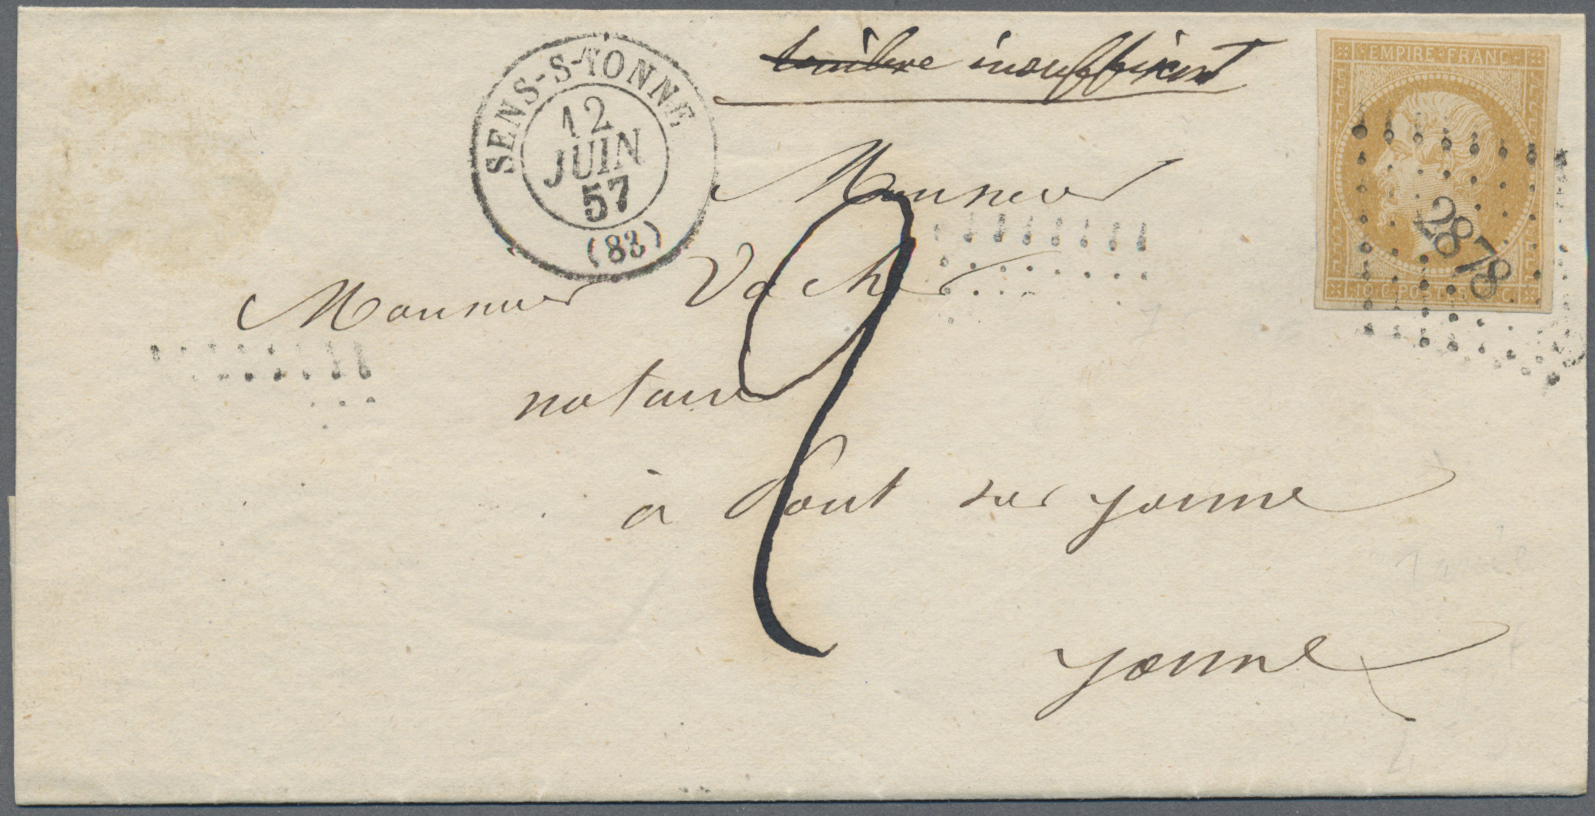 timbre insuffisant
EMPIRE FRANC
10 C POSTES 10 C
2878
SENS-S-YONNE
12
JUIN
57
(83)
Monsieur
Monsieur Vaché
notaire
à Pont sur yonne
yonne
2